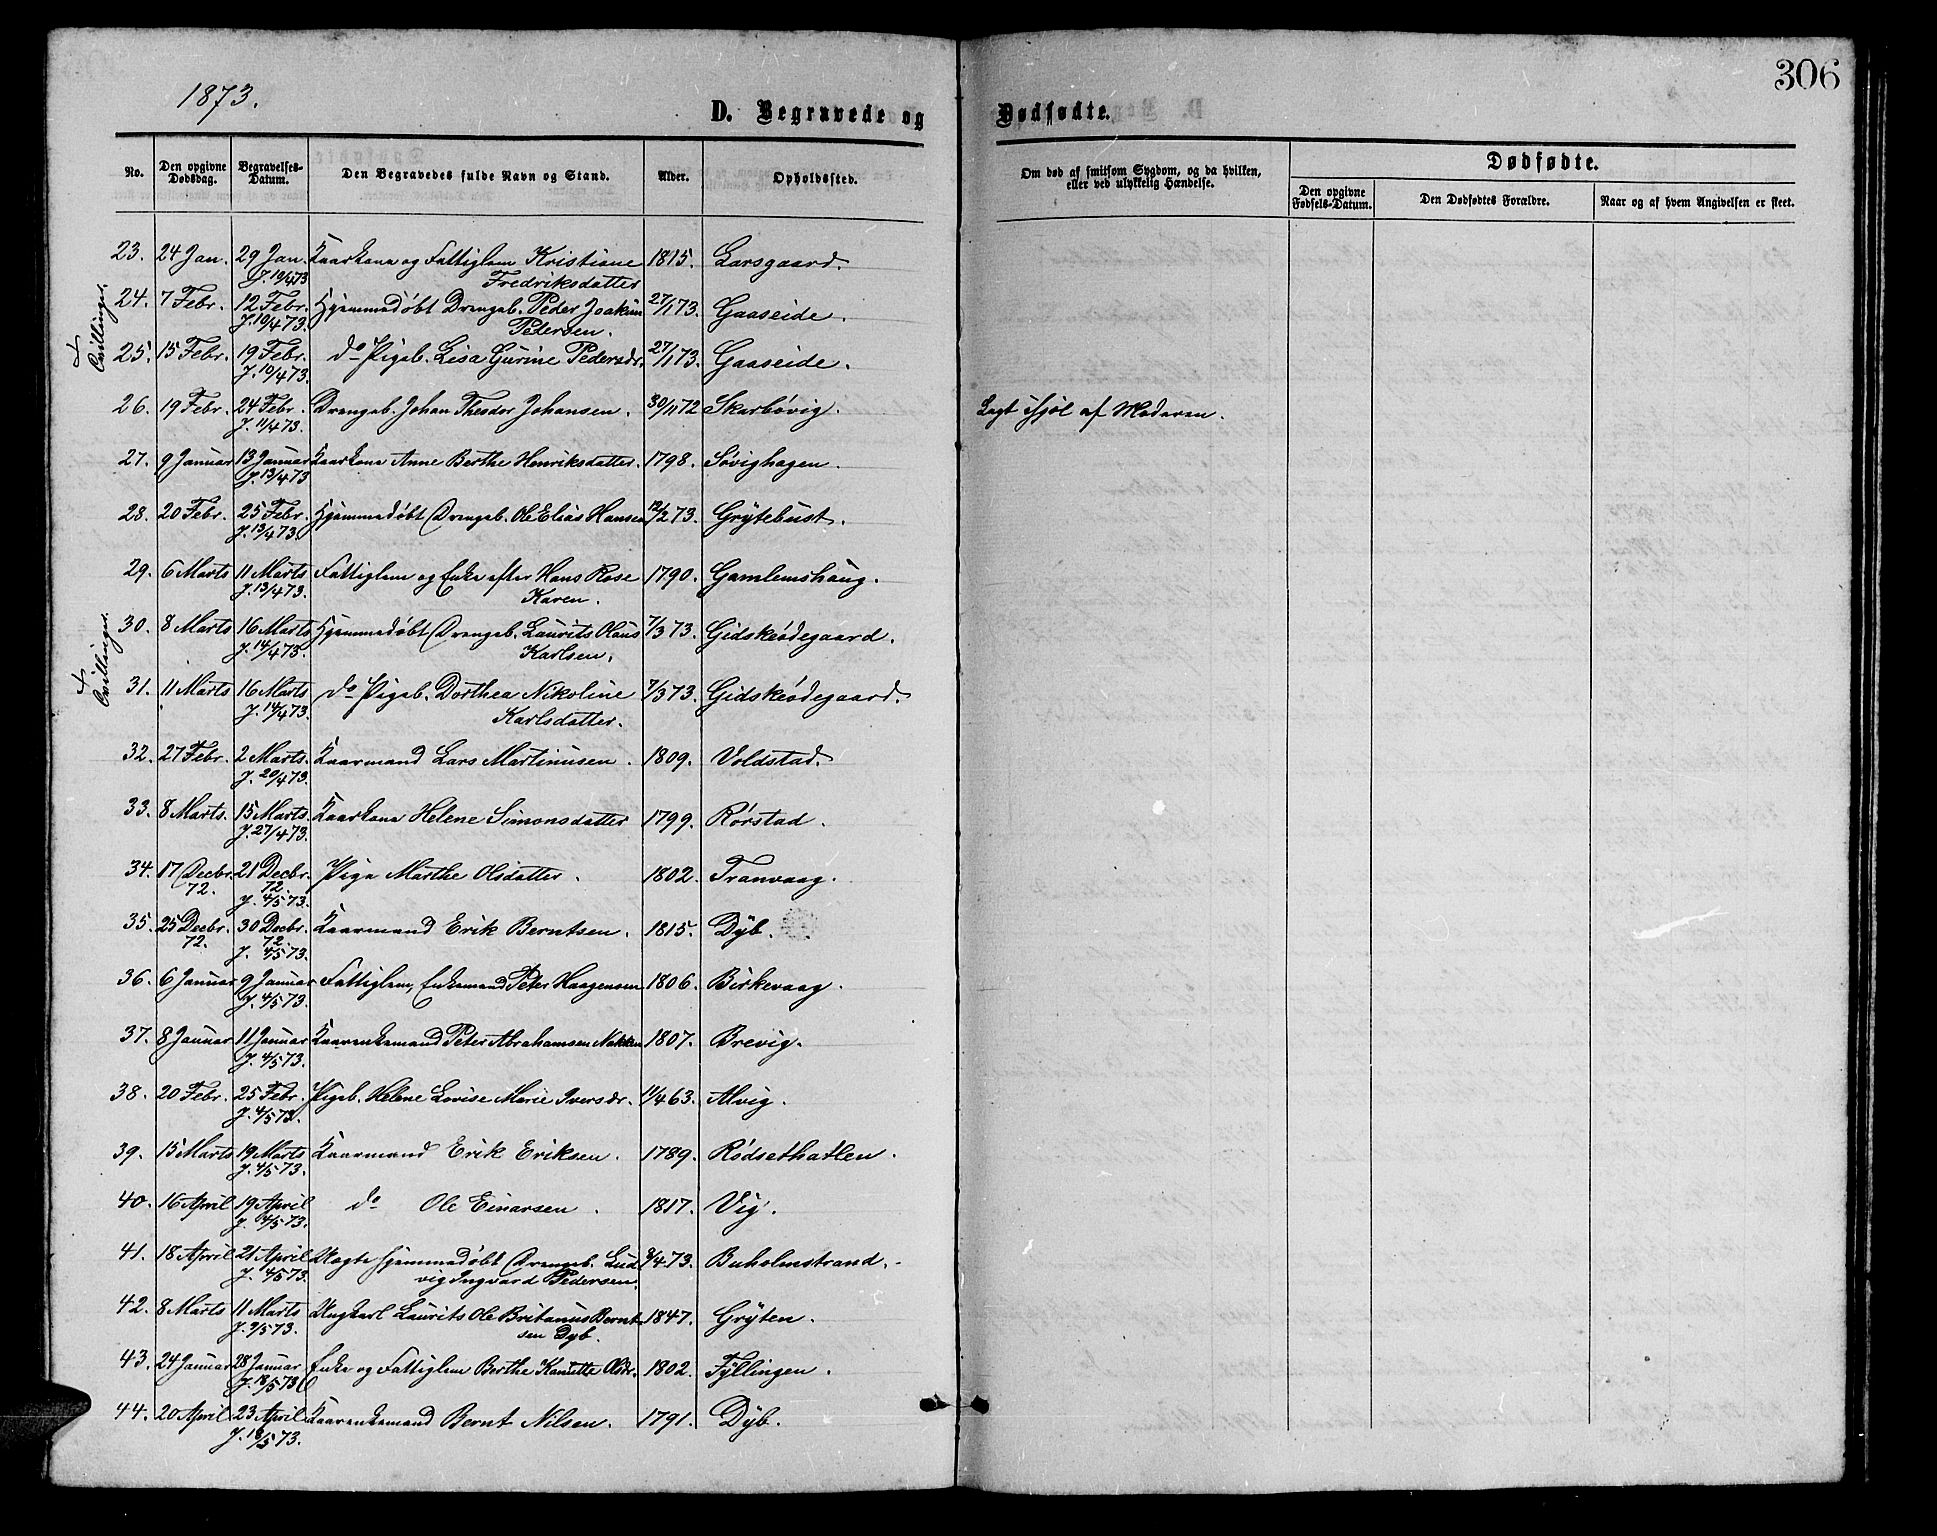 1873.
306
D. Begravede og Dødfødte.
No.
Den opgivne Dødsdag.
Begravelses-Datum.
Den Begravedes fulde Navn og Stand.
Alder.
Opholdssted.
Om død af smitsom Sygdom, og da hvilken,
eller ved ulykkelig Hændelse.
Dødfødte.
Den opgivne Fødsels-Datum.
Den Dødfødtes Forældre.
Naar og af hvem Angivelsen er skeet.
23. 24 Jan. 29 Jan. Kaarkone og Fattiglem Kristiane 1815. Larsgaard.
J. 10/4 73 Fredriksdatter
24. 7 Febr. 12 Febr. Hjemmedøbt Drengeb. Peder Joakim 27/1 73. Gaaseide.
J. 10/4 73. Pedersen.
+ Tvillinger.
25. 15 Febr. 19 Febr. do Pigeb. Lisa Gurine Pedersdr. 27/1 73. Gaaseide.
J. 10/4 73.
26. 19 Febr. 24 Febr. Drengeb. Johan Theodor Johansen. 30/11 72 Skarbøvig. Lagt ihjel af Moderen.
J. 11/4 73.
27. 9 Januar 13 Januar Kaarkone Anne Berthe Henriksdatter. 1798. Søvighagen.
J. 13/4 73
28. 20 Febr. 25 Febr. Hjemmedøbt Drengeb. Ole Elias Hansen 12/2 73. Grytebust.
J. 13/4 73.
29. 6 Marts 11 Marts Fattiglem og Enke efter Hans Rose 1790. Gamlemshaug.
J. 13/4 73. Karen.
30. 8 Marts 16 Marts Hjemmedøbt Drengeb. Laurits Olaus 7/3 73. Gidskeødegaard.
J. 14/4 73. Karlsen.
+ Tvillinger.
31. 11 Marts 16 Marts do Pigeb. Dorthea Nikoline 7/3 73. Gidskeødegaard.
J. 14/4 73. Karlsdatter.
32. 27 Febr. 2 Marts. Kaarmand Lars Martinusen. 1809. Voldstad.
J. 20/4 73.
33. 8 Marts. 15 Marts. Kaarkone Helene Simonsdatter 1799. Rørstad.
J. 27/4 73.
34. 17 Decbr. 21 Decbr. Pige Marthe Olsdatter. 1802. Tranvaag.
72. 72.
J. 4/5 73.
35. 25 Decbr. 30 Decbr. Kaarmand Erik Berntsen. 1815. Dyb.
72. 72.
J. 4/5 73.
36. 6 Januar 9 Januar Fattiglem, Enkemand Peter Haagensen 1806. Birkevaag.
J. 4/5 73.
37. 8 Januar 11 Januar Kaarenkemand Peter Abrahamsen Nakken 1807. Brevig.
J. 4/5 73.
38. 20 Febr. 25 Febr. Pigeb. Helene Lovise Marie Iversdr. 11/4 63. Alvig.
J. 4/5 73.
39. 15 Marts 19 Marts Kaarmand Erik Eriksen. 1789. Rødsethatlen.
J. 4/5 73.
40. 16 April 19 April do Ole Einarsen. 1817. Vig.
J. 4/5 73.
41. 18 April 21 April Uægte hjemmedøbt Drengeb. Lud- 8/4 73. Buholmstrand.
J. 4/5 73. vig Ingvard Pedersen.
42. 8 Marts 11 Marts Ungkarl Laurits Ole Britanus Bernt- 1847. Gryten.
J. 9/5 73. sen Dyb.
43. 24 Januar 28 Januar Enke og Fattiglem Berthe Olsdr. 1802. Fyllingen.
J. 18/5 73
44. 20 April 23 April Kaarenkemand Bernt Nilsen. 1791. Dyb.
J. 18/5 73.